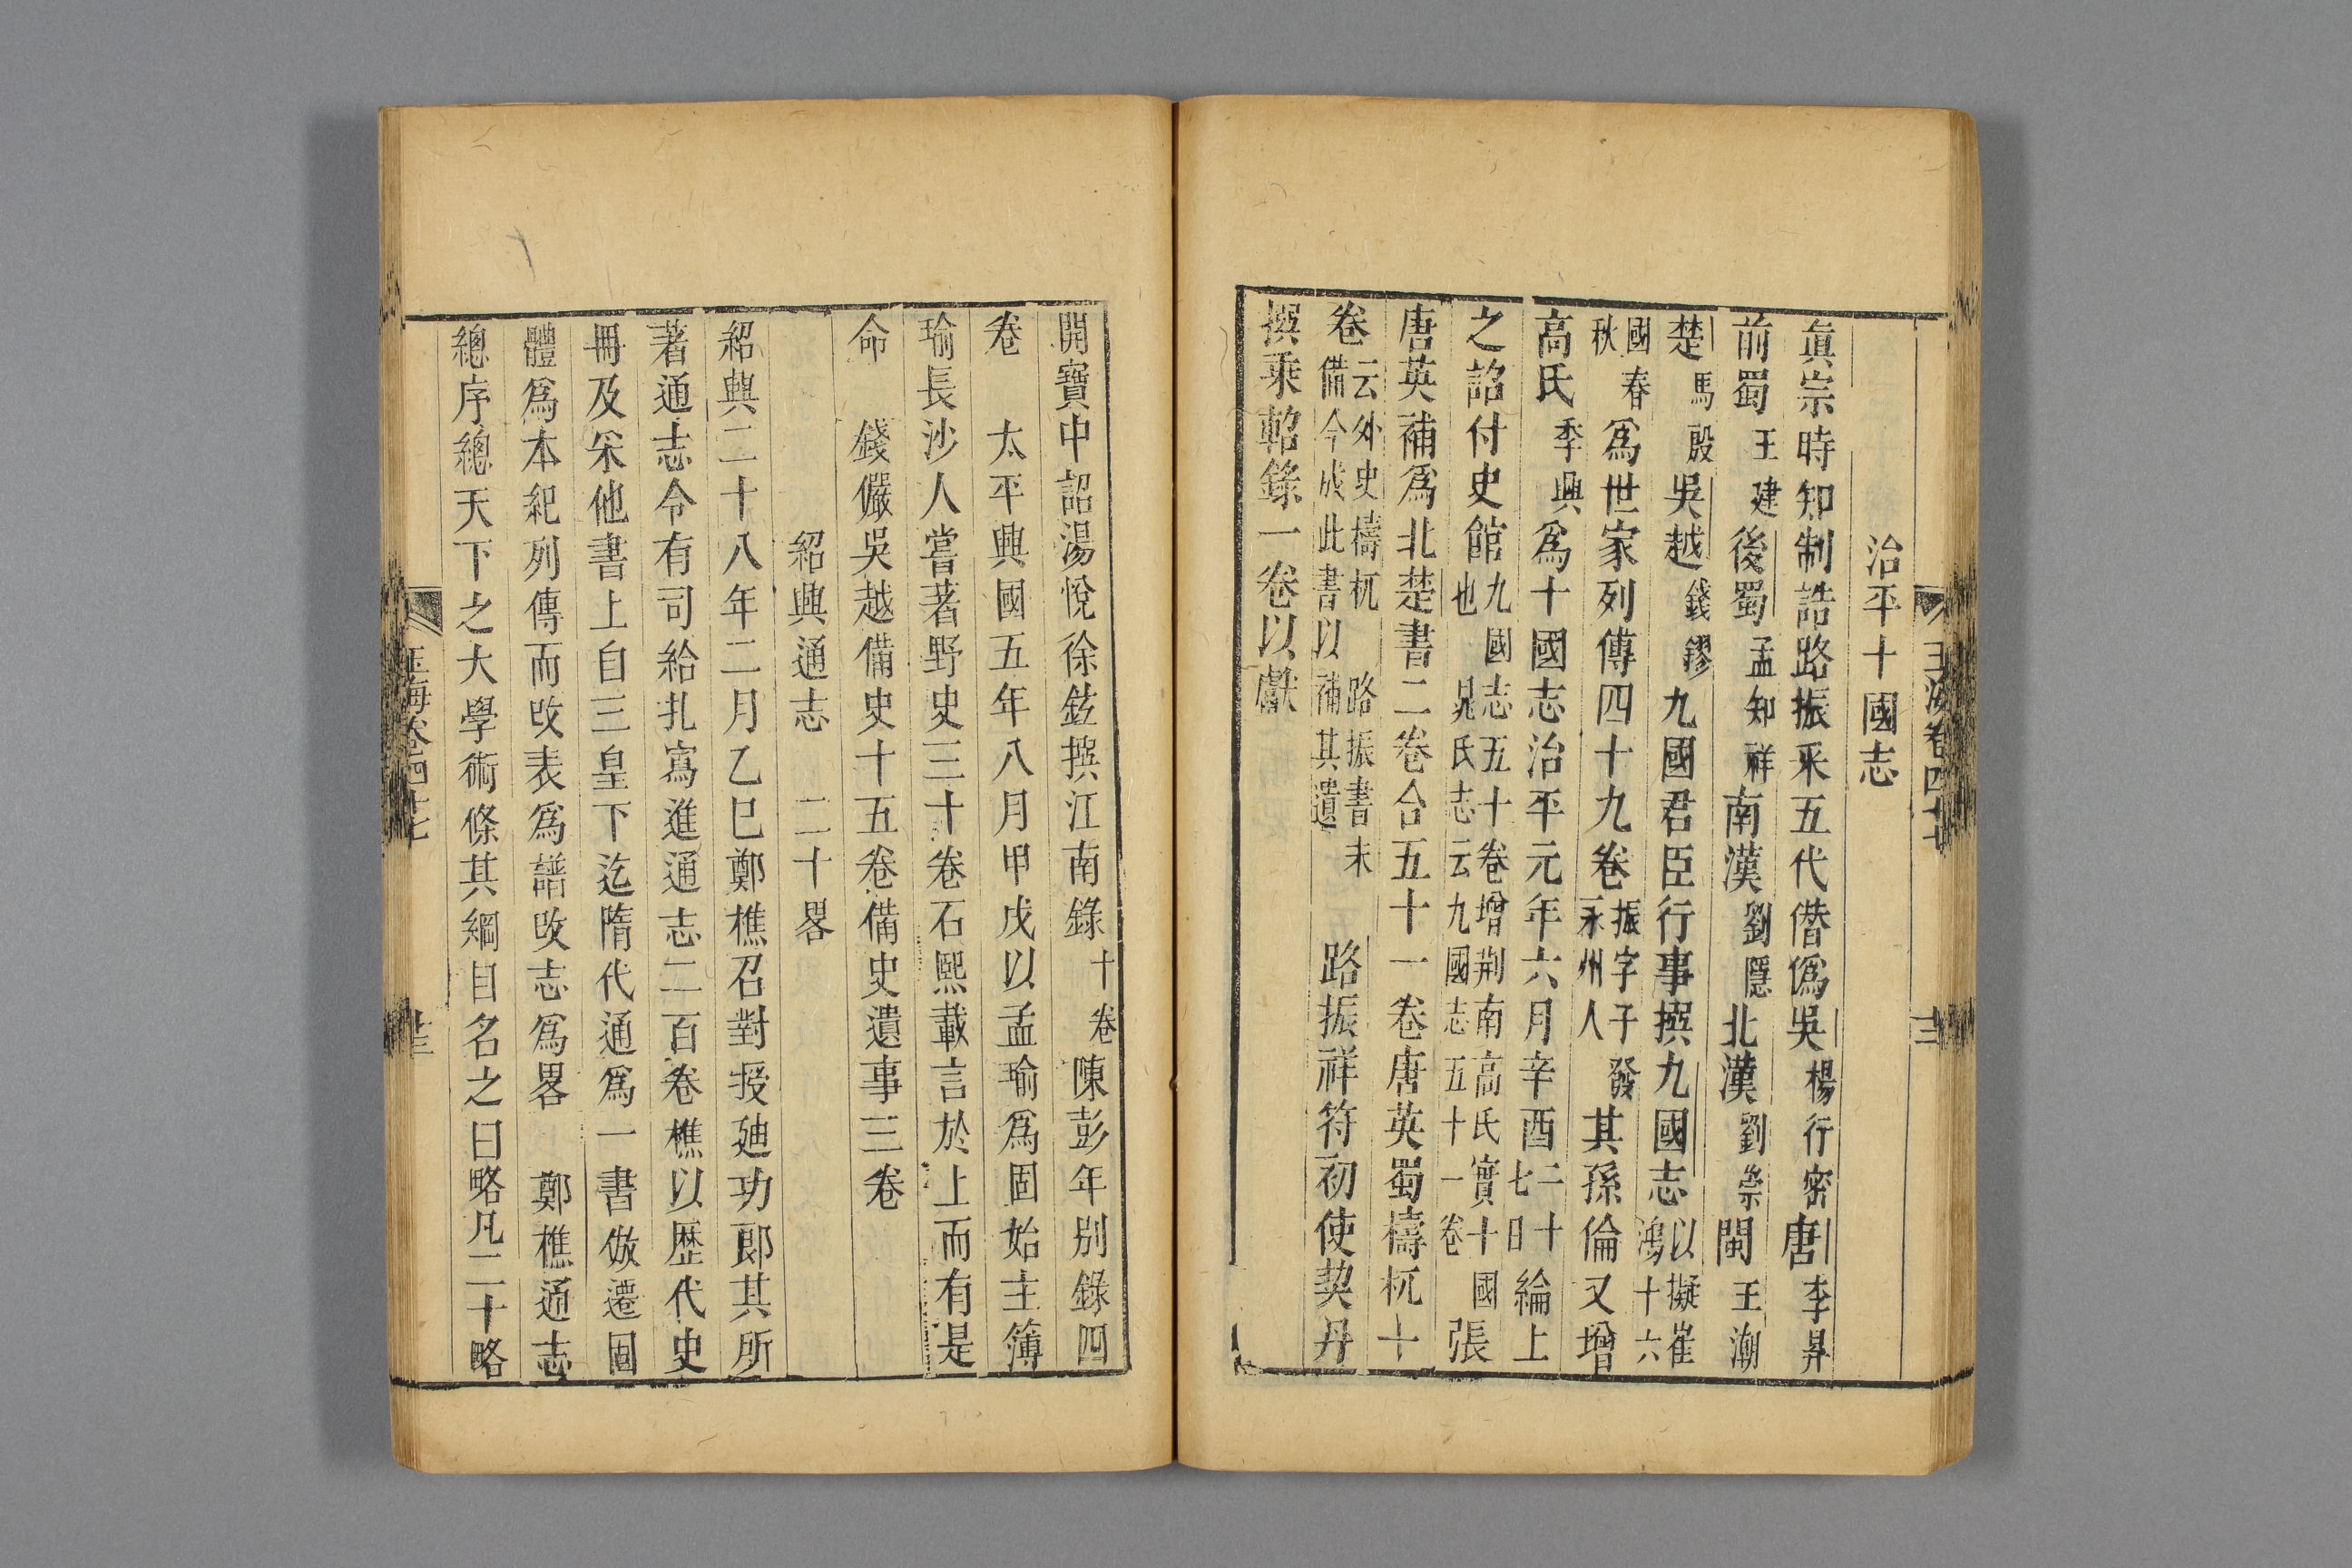 治平十國志
眞宗時知制誥路振采五代僭僞吳楊行密唐李昪
前蜀王建後蜀孟知祥南漢劉隱北漢劉崇閩王潮
楚馬殷吳越錢鏐九國君臣行事撰九國志以擬崔鴻十六
國春秋爲世家列傳四十九卷振字子發永州人其孫倫又增
高氏季興爲十國志治平元年六月辛酉二十七日綸上
之詔付史館九國志五十卷增荆南高氏實十國也晁氏志云九國志五十一卷張
唐英補爲北楚書二卷合五十一卷唐英蜀檮杌十
卷云外史檮杌路振書未備今成此書以補其遺路振祥符初使契丹
撰乘軺錄一卷以獻
開寶中詔湯悅徐鉉撰江南錄十卷陳彭年別錄四
卷太平興國五年八月甲戌以孟瑜爲固始主簿
瑜長沙人嘗著野史三十卷石熙載言於上而有是
命錢儼吳越備史十五卷備史遺事三卷
紹興通志二十畧
紹興二十八年二月乙巳鄭樵召對授廸功郎其所
著通志令有司給扎寫進通志二百卷樵以歷代史
冊及采他書上自三皇下迄隋代通爲一書倣遷固
體爲本紀列傳而改表爲譜改志爲畧鄭樵通志
總序總天下之大學術條其綱目名之曰略凡二十略
玉海卷四十七